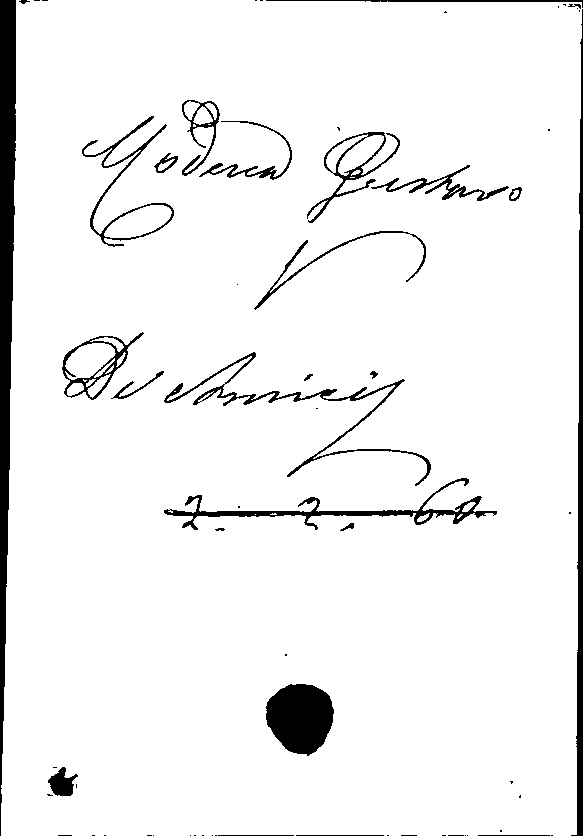 Modena Gustavo
De Amicis
2. 2. 60.